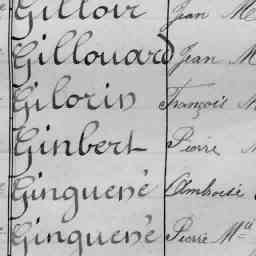 Gillouard Jean M
Gilorin François M
Ginbert Pierre
Ginguené Ambroise
Ginguené Pierre Mie